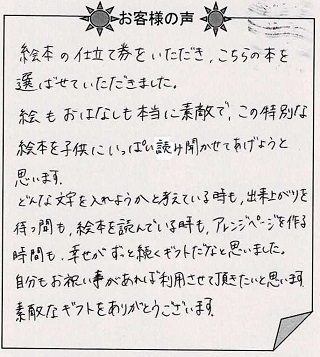 お客様の声
絵本の仕立て券をいただき、こちらの本を
選ばせていただきました。
絵もおはなしも本当に素敵で、この特別な
絵本を子供にいっぱい読み聞かせてあげようと
思います。
どんな文字を入れようかと考えている時も、出来上がりを
待つ間も、絵本を読んでいる時も、アレンジページを作る
時間も、幸せがずっと続くギフトだなと思いました。
自分もお祝い事があれば利用させて頂きたいと思います。
素敵なギフトをありがとうございます。